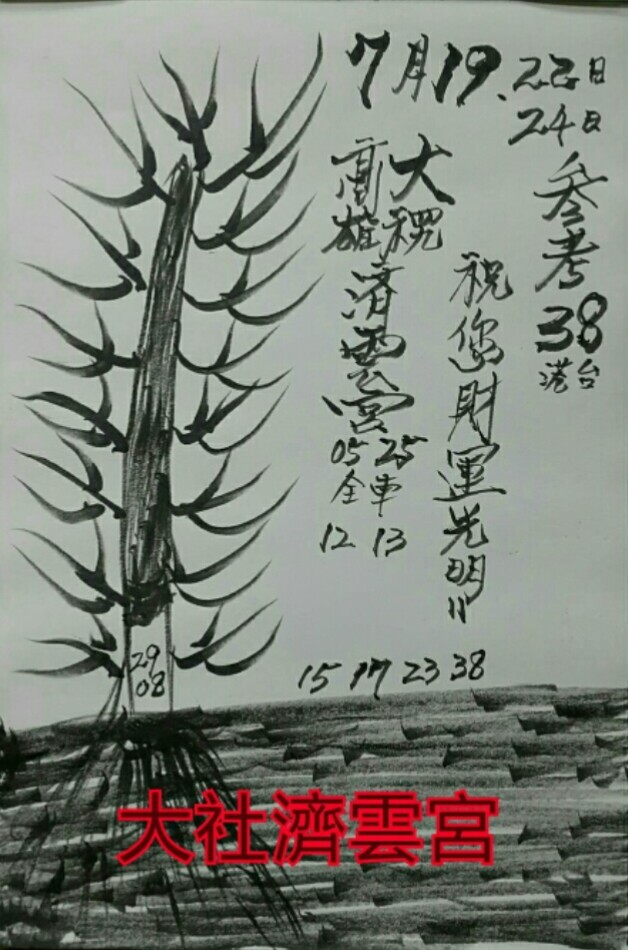 7月19.22日
24日
参考
38
港台
高雄
大稷
濟雲宮
05 25
全車
12 13
祝您財運光明!!
29
08
15 17 23 38
大社濟雲宮